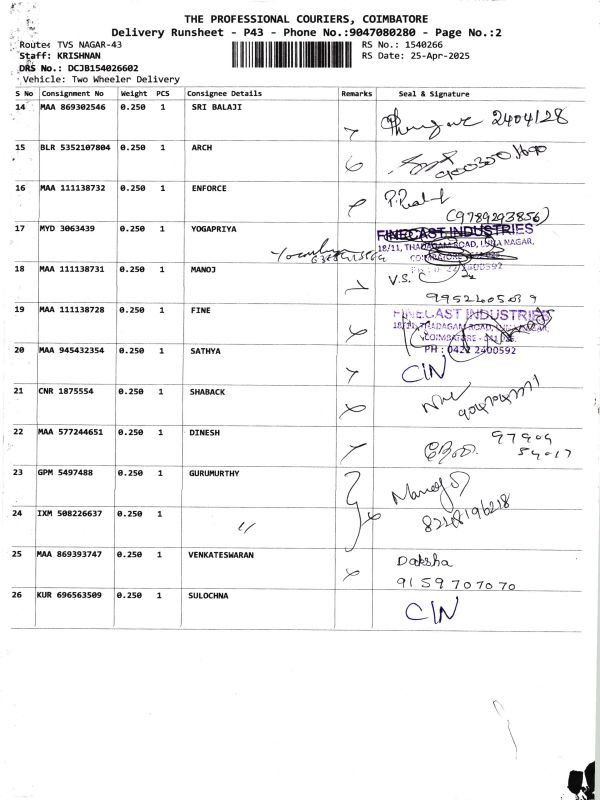 THE PROFESSIONAL COURIERS, COIMBATORE
Delivery Runsheet - P43 - Phone No.:9047080280 - Page No.:2
Route: TVS NAGAR-43 RS No.: 1540266
Staff: KRISHNAN RS Date: 25-Apr-2025
DRS No.: DCJB154026602
Vehicle: Two Wheeler Delivery
S No Consignment No Weight PCS Consignee Details Remarks Seal & Signature
14 MAA 869302546 0.250 1 SRI BALAJI
2404128
15 BLR 5352107804 0.250 1 ARCH
16 MAA 111138732 0.250 1 ENFORCE
(9789293856)
17 MYD 3063439 0.250 1 YOGAPRIYA FINECAST INDUSTRIES
18/11, THADAGAM ROAD, LUNA NAGAR,
18 MAA 111138731 0.250 1 MANOJ V.S.
19 MAA 111138728 0.250 1 FINE FINECAST INDUSTRIES
18/11, THADAGAM ROAD, LUNA NAGAR,
COIMBATORE
20 MAA 945432354 0.250 1 SATHYA PH : 0422 2400592
CIN
21 CNR 1875554 0.250 1 SHABACK
22 MAA 577244651 0.250 1 DINESH 97909
54017
23 GPM 5497488 0.250 1 GURUMURTHY
Manoj
24 IXM 508226637 0.250 1 〃
8248196218
25 MAA 869393747 0.250 1 VENKATESWARAN Daksha
9159707070
26 KUR 696563509 0.250 1 SULOCHNA CIN